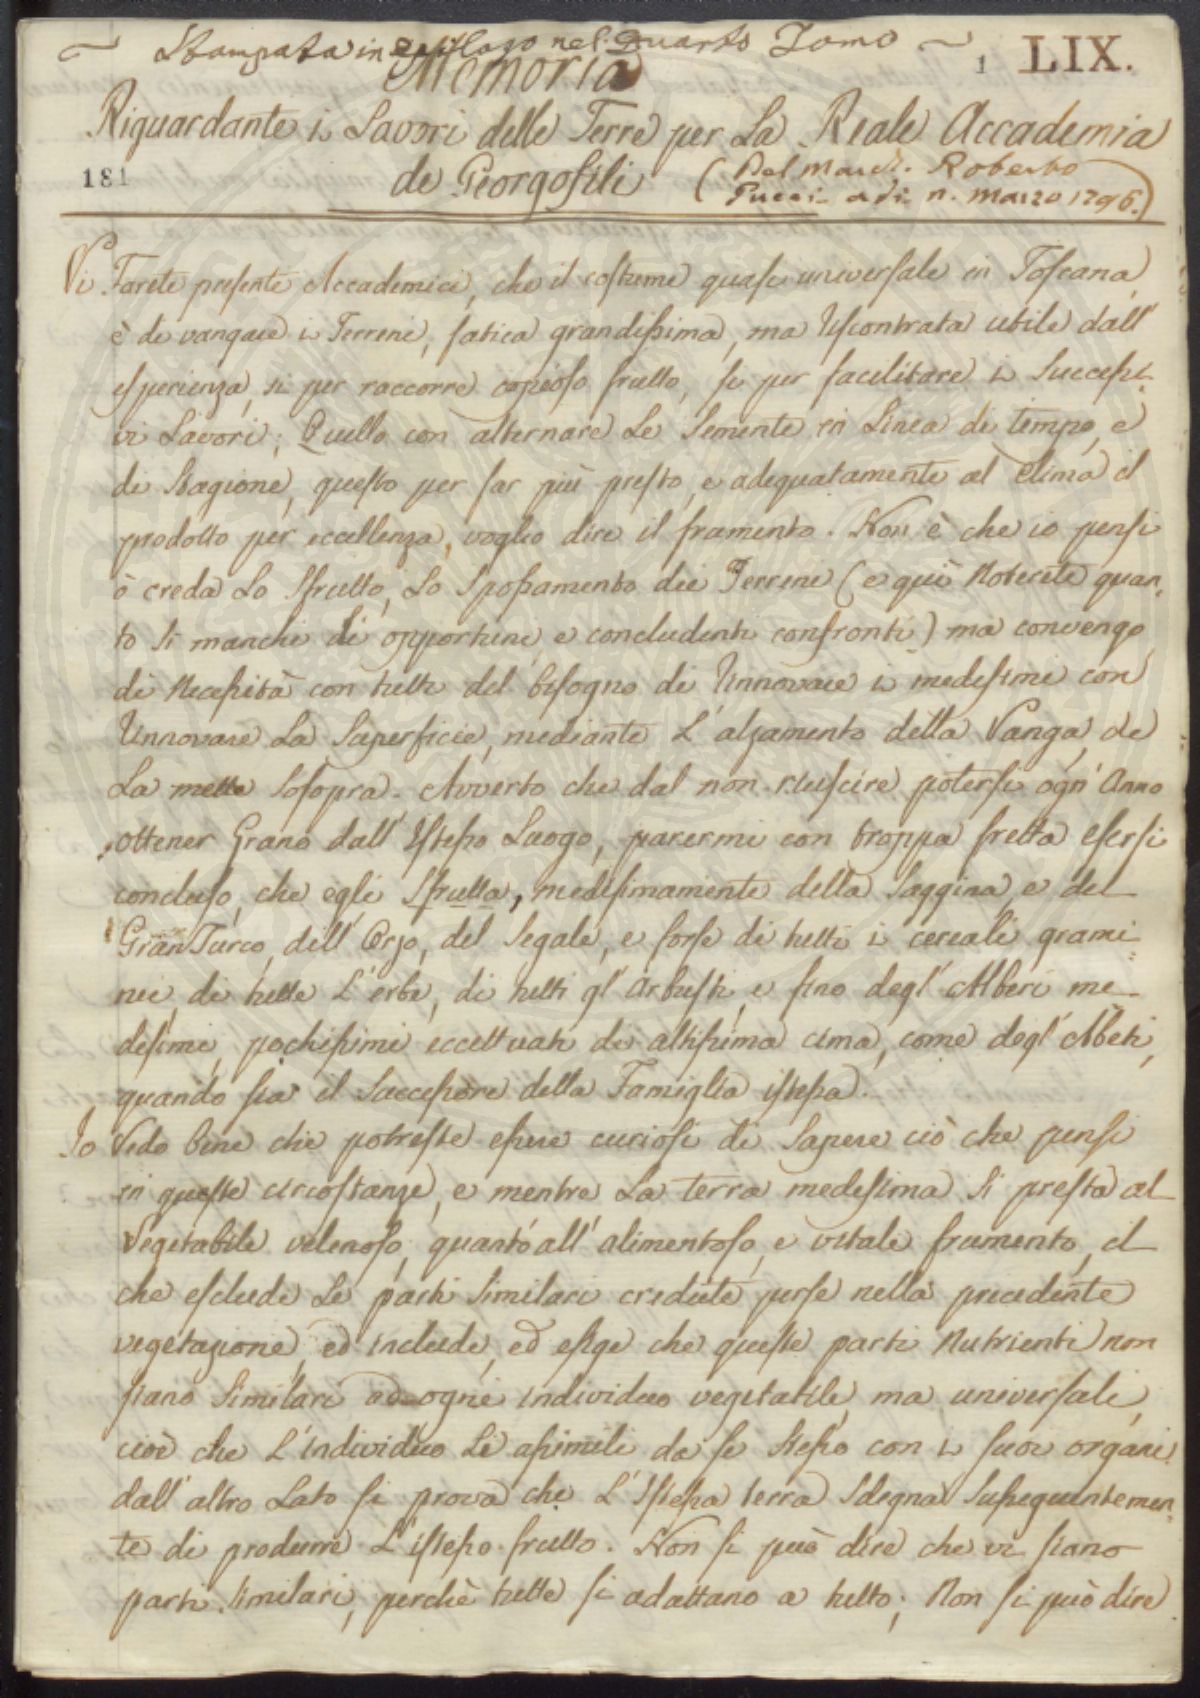 Stampata in Epilogo nel Quarto Tomo
1 LIX.
Memoria
Riguardante i Lavori delle Terre per La Reale Accademia
181
de Georgofili (Del March. Roberto
Pucci adì n. Marzo 1796.)
Vi Farete presente Accademici, che il costume quasi universale in Toscana,
è di vangare i Terreni, fatica grandissima, ma riscontrata utile dall'
esperienza, si per raccorre copioso frutto, si per facilitare i Successi-
vi Lavori; Quello con alternare Le Semente in Linea di tempo, e
di Stagione, questo per far più presto, e adeguatamente al Clima il
prodotto per eccellenza, voglio dire il framento. Non è che io pensi
ò creda Lo Sfrutto, Lo Spossamento dei Terreni (e quì Noterete quan-
to si manchi di opportuni, e concludenti confronti) ma convengo
di Necessità con tutti del bisogno di Rinnovare i medesimi con
Rinnovare La Superficie, mediante L'alzamento della Vanga, che
La mette Sosopra. Avverto che dal non riuscire potersi ogn' Anno
ottener Grano dall' Istesso Luogo, parermi con troppa fretta essersi
concluso, che egli Sfrutta, medesimamente della Saggina, e del
Gran Turco, dell' Orzo, del Segale, e forse di tutti i cereali grami-
nei, di tutte L'erbe, di tutti gl' Arbusti, e fino degl' Alberi me-
desimi, pochissimi eccettuati di altissima cima, come degl' Abeti,
quando sia il Successore della Famiglia istessa.
Io Vedo bene che potreste essere curiosi di Sapere ciò che pensi
in queste circostanze, e mentre La terra medesima Si presta al
Vegetabile velenoso, quanto all' alimentoso, e vitale frumento, il
che esclude Le parti Similari credute perse nella precedente
vegetazione, ed include, ed esige che queste parti Nutrienti non
siano Similari ad ogni individuo vegetabile, ma universali,
cioè che L'individuo Le assimili da se Stesso con i suoi organi
dall' altro Lato si prova che L'Istessa terra Sdegna Susseguentemen-
te di produrre L'istesso frutto. Non si può dire che vi siano
parti Similari, perchè tutte si adattano a tutto; Non si può dire